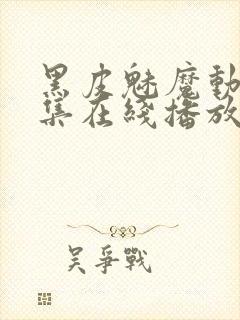 黑皮魅魔動
集在綫播放
吴爭戰